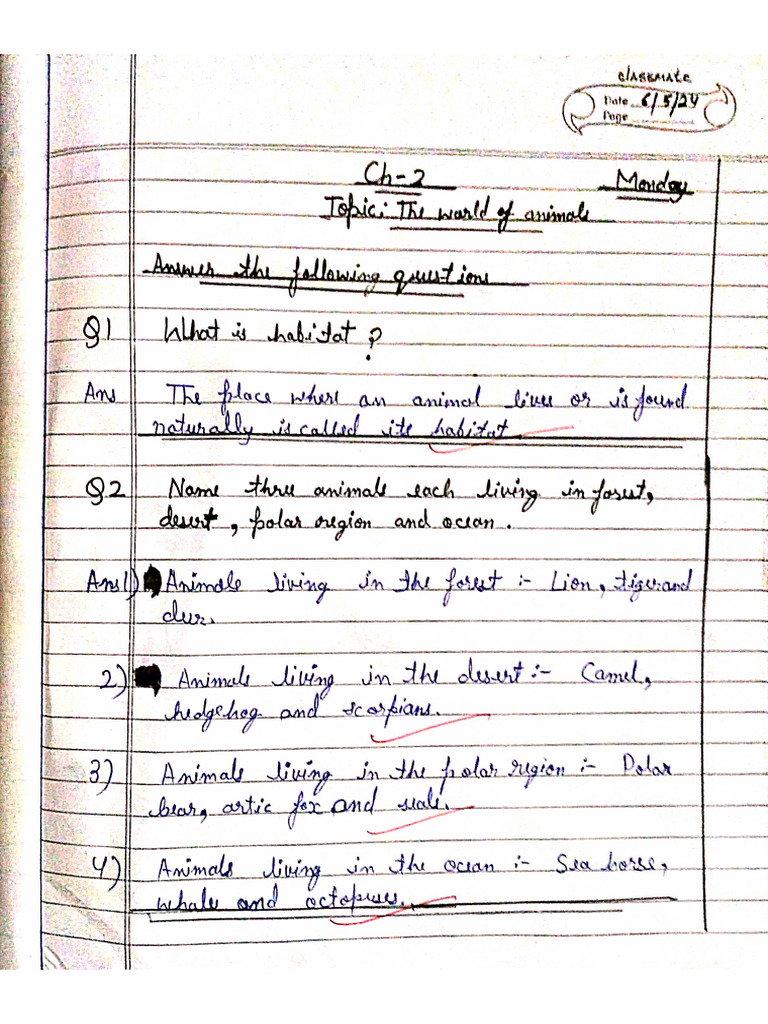 classmate
Date 6/5/24
Page
Ch-2 Monday
Topic: The world of animals
Answer the following questions
Q1 What is habitat?
Ans The place where an animal lives or is found
naturally is called its habitat
Q2 Name three animals each living in forest,
desert, polar region and ocean.
Ans 1) Animals living in the forest :- Lion, tiger and
deer.
2) Animals living in the desert :- Camel,
hedgehog and scorpians.
3) Animals living in the polar region :- Polar
bear, artic fox and seals.
4) Animals living in the ocean :- Sea horse,
whale and octopuses.